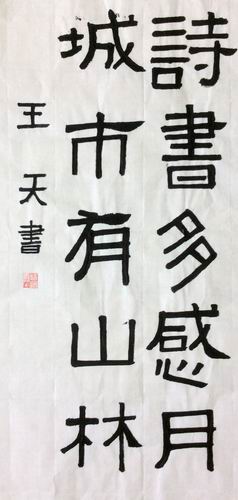 詩書多感月
城市有山林
王天書